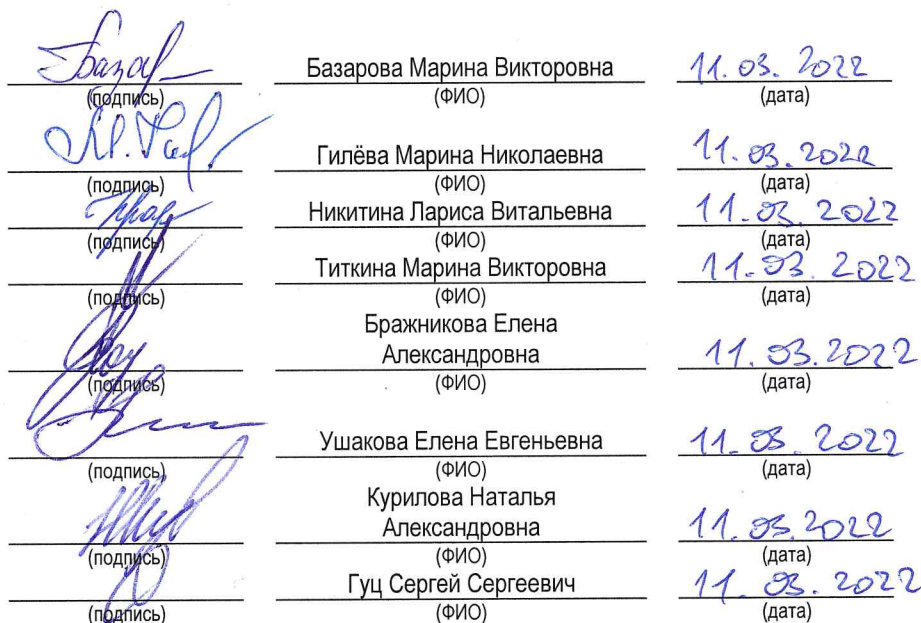 Базарова Марина Викторовна 11.03.2022
(подпись) (ФИО) (дата)
Гилёва Марина Николаевна 11.03.2022
(подпись) (ФИО) (дата)
Никитина Лариса Витальевна 11.03.2022
(подпись) (ФИО) (дата)
Титкина Марина Викторовна 11.03.2022
(подпись) (ФИО) (дата)
Бражникова Елена
Александровна 11.03.2022
(подпись) (ФИО) (дата)
Ушакова Елена Евгеньевна 11.03.2022
(подпись) (ФИО) (дата)
Курилова Наталья
Александровна 11.03.2022
(подпись) (ФИО) (дата)
Гуц Сергей Сергеевич 11.03.2022
(подпись) (ФИО) (дата)